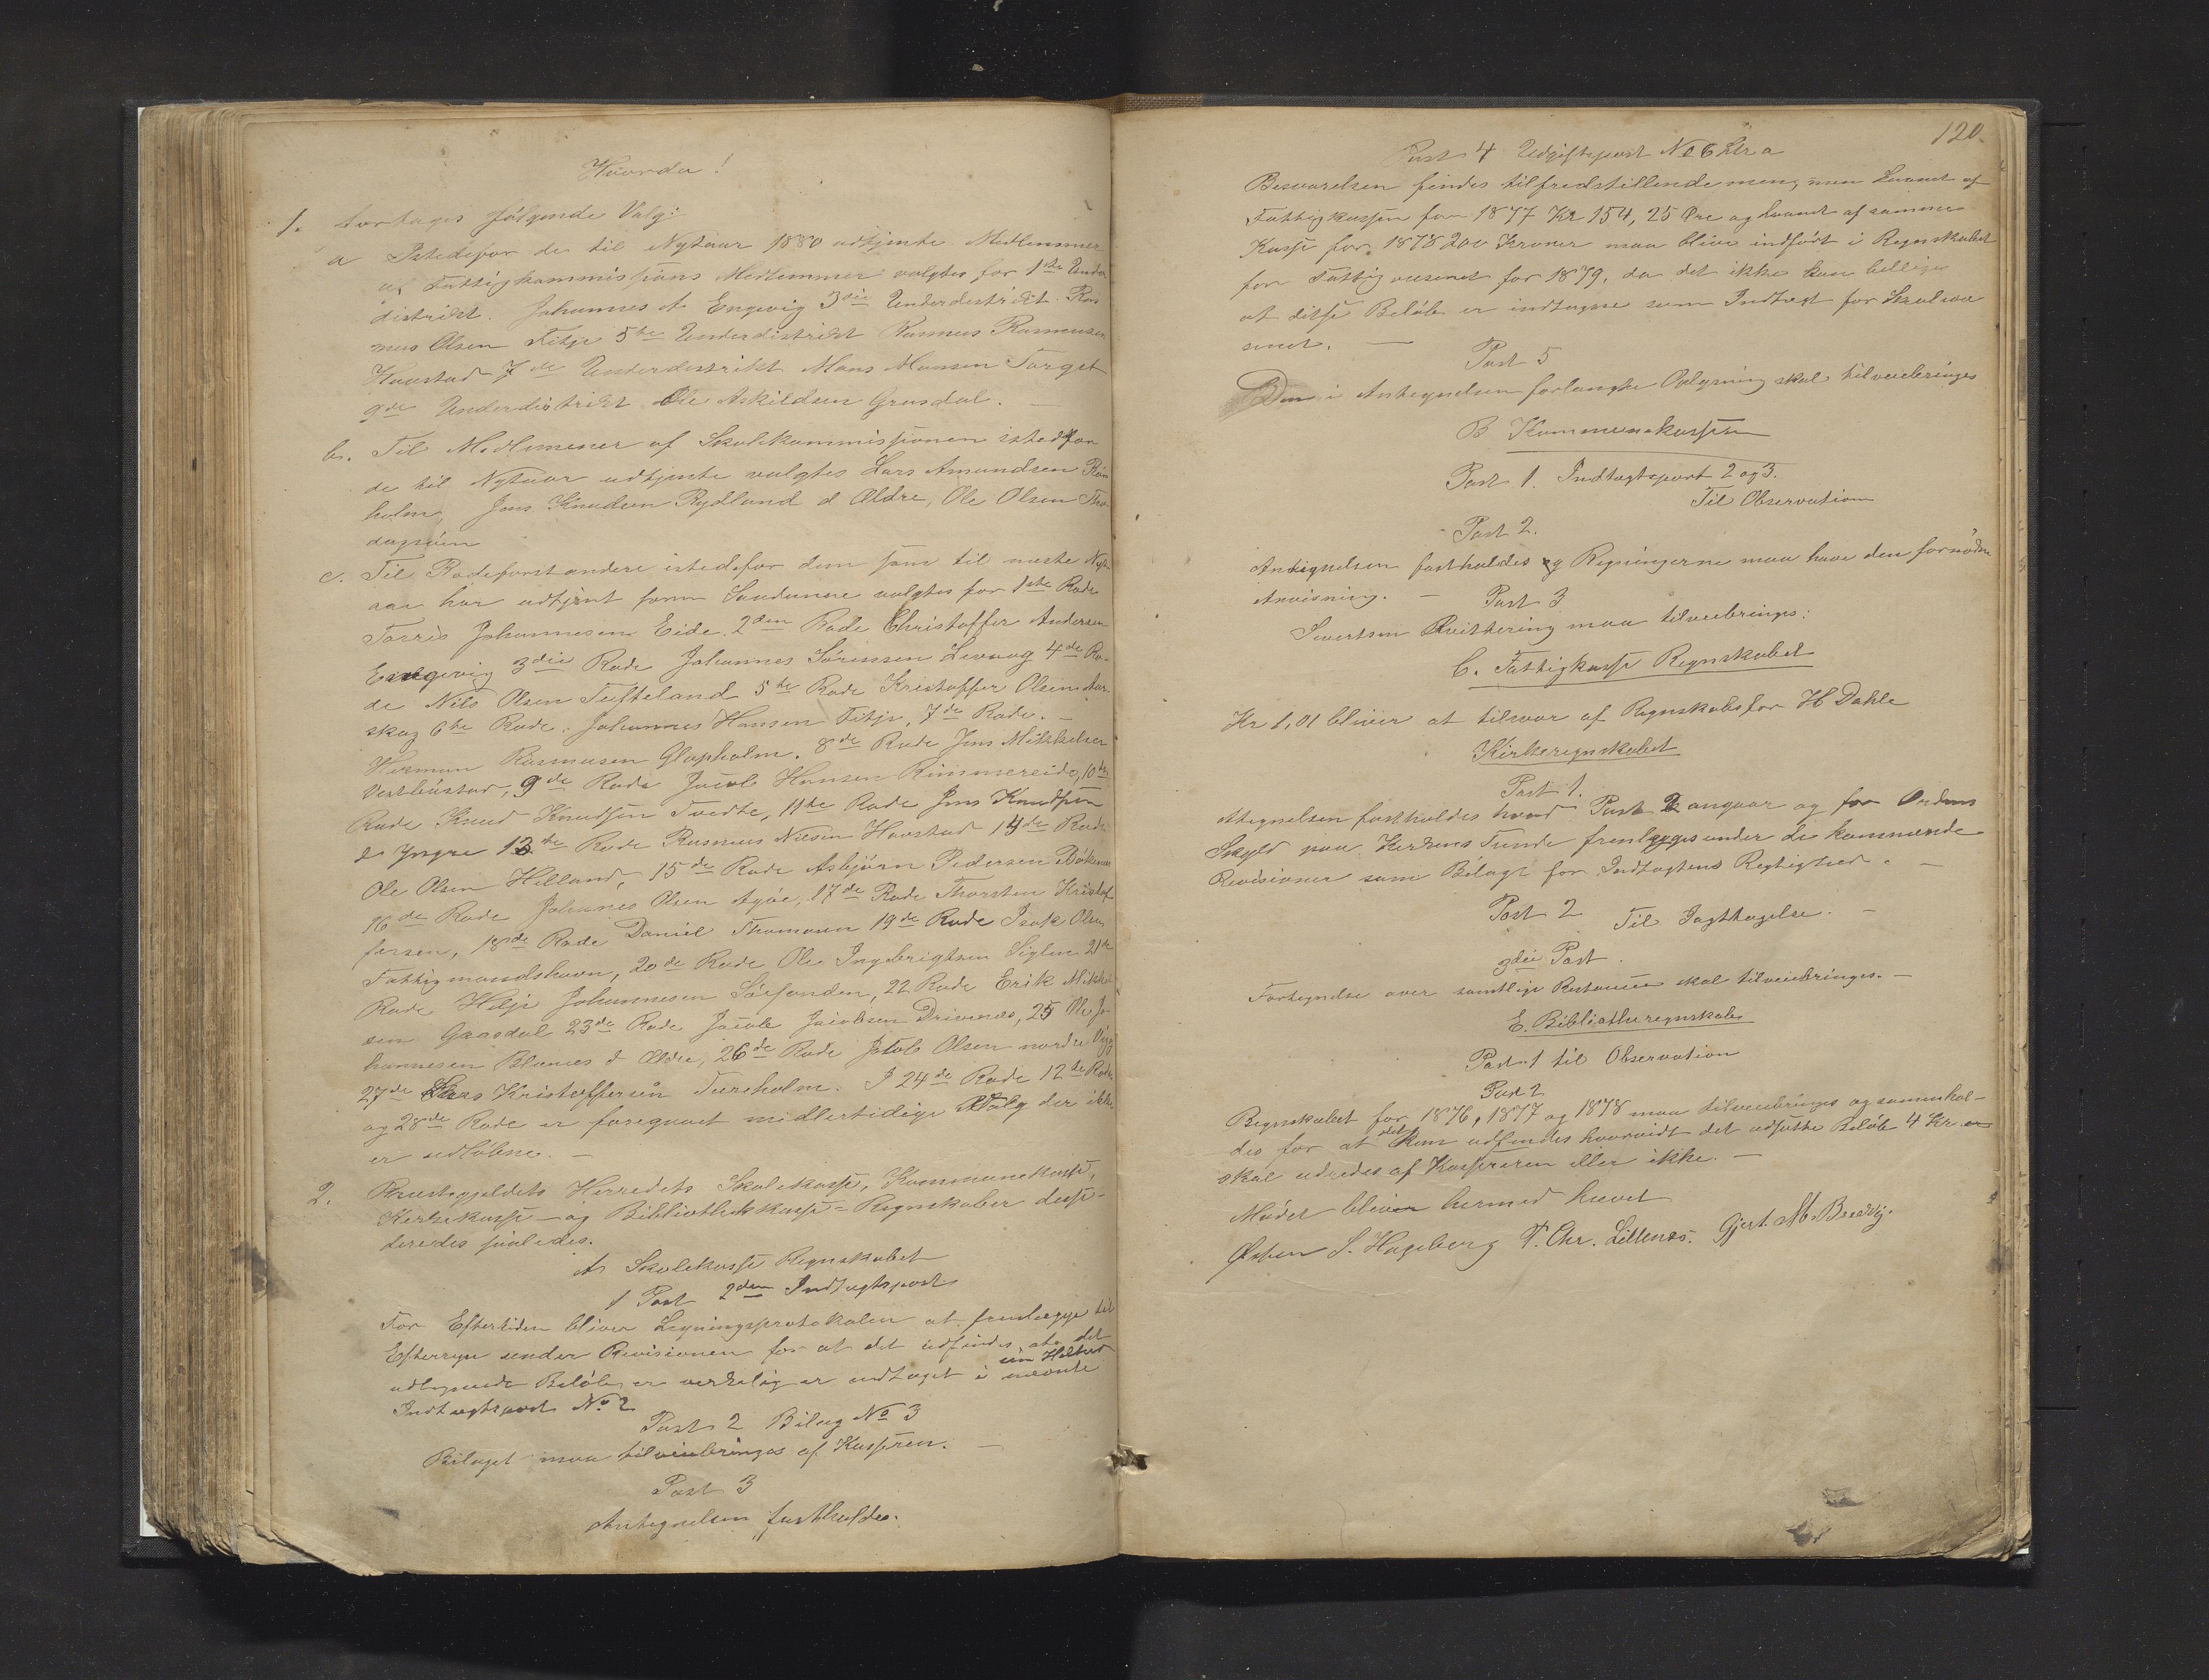 Hvorda!
1. Fortages følgende Valg:
a Istedefor de til Nytaar 1880 udtjente Medlemmer
af Fattigkommissjons Medlemmer valgtes for 1ste Under
distrikt. Johannes A. Engevig 3die Underdistrikt Ras
mus Olsen Fitje 5te Underdistrikt Rasmus Rasmusen
Havstad 7de Underdistrikt Mons Monsen Torget
9de Underdistrikt Ole Askildsen Grasdal. —
b. Til Medlemmer af Skolekommissjonen istedfor
de til Nytaar udtjente valgtes Lars Amundsen
holm, Jens Knudsen Rydland d Ældre, Ole Olsen
c. Til Rodeforstandere istedefor dem som til næste Nyt
aar har udtjent som Saadanne valgtes for 1ste Rode
Torris Johannesen Eide. 2den Rode Christoffer Andersen
Engevig 3die Rode Johannes Sørensen Levaag 4de Ro-
de Nils Olsen Tufteland 5te Rode Kristoffer Olsen Aar
skog 6te Rode. Johannes Hansen Fitje, 7de Rode. —
Herman Rasmusen Glopholm. 8de Rode Jens Mikkelsen
Vestbøstad, 9de Rode Jacob Hansen Rimmereide, 10de
Rode Knud Knudsen Tvedte, 11te Rode Jens Knudsen
d Yngre 13de Rode Rasmus Nilsen Havstad 14de Rode
Ole Olsen Helland, 15de Rode Asbjørn Pedersen
16de Rode Johanes Olsen Agøe, 17de Rode Thorsten Kristof
fersen, 18de Rode Daniel Thomasen 19de Rode Isak Olsen
Fattigmandshavn, 20de Rode Ole Ingebrigtsen Siglen 21de
Rode Helje Johannesen Sørfonden, 22 Rode Erik Mikkel
sen Gaasdal 23de Rode Jacob Jacobsen Drivenes, 25 Ole Jo
hannesen Blænes d Ældre, 26de Rode Jakob Olsen nordre
27de Lars Kristoffersen Tureholm. I 24de Rode 12te Rode
og 28de Rode er foregaaet midlertidige Valg der ikke
er udløbne. —
2. Præstegjeldets Herredets Skolekasse, Kommunekasse,
Kirkekasse – og Bibliothekkasse = Regnskaber desi-
deredes saaledes.
A Skolekasse Regnskabet
1 Post 2den Indtægtspost
For Eftertiden bliver Ligningsprotokolen at fremlægge til
Eftersyn under Revisionen for at det udfindes at det
udlignede Beløb er verkelig er indtaget i nævnte
Indtægtspost No 2
Post 2 Bilag No 3
Bilaget maa tilveiebringes af Kasseren. —
Post 3
Antegnelsen fastholdes.
120.
Post 4 Udgiftspost No 6 Ltr a
Besvarelsen findes tilfredstillende men, men Laanet af
Fattigkassen for 1877 Kr 154, 25 Øre og Laanet af samme
Kasse for 1878 200 Kroner maa blive indført i Regnskabet
for Fattigvæsenet for 1879, da det ikke kan billiges
at disse Beløb er indtagne som Indtægt for Skolevæ
senet. —
Post 5
Den i Antegnelsen forlangte Oplysning skal tilveiebringes
B Kommunekassen
Post 1. Indtægtspost 2 og 3.
Til Observation
Post 2.
Antegnelsen fastholdes og Regningerne maa have den fornødne
Anvisning. —
Post 3
Sivertsen Qvittering maa tilveiebringes:
C. Fattigkasse Regnskabet
Kr 1,01 bliver at tilsvar af Regnskabsfør H Dahle
Kirkeregnskabet
Post 1.
Ategnelsen fastholdes hvad Post 2 angaar og for Ordens
Skyld maa Kirkens Tiende fremlegges under de kommende
Revisioner som Bilage for Indtægtens Rigtighed. —
Post 2 Til Iagttagelse. —
3die Post.
Fortegnelse over samtlige Restancer skal tilveiebringes. —
E. Bibliothe regnskabe
Post 1 til Observation
Post 2
Regnskabet for 1876, 1877 og 1878 maa tilveiebringes og sammenhol-
des for at det kan udfindes hvorvidt det udsatte Beløb 4 Kr er
skal udredes af Kassereren eller ikke. —
Mødet bliver hermed hævet
Østen S. Hageberg P. Chr. Lillenes. Gjert. M. Bredvig.